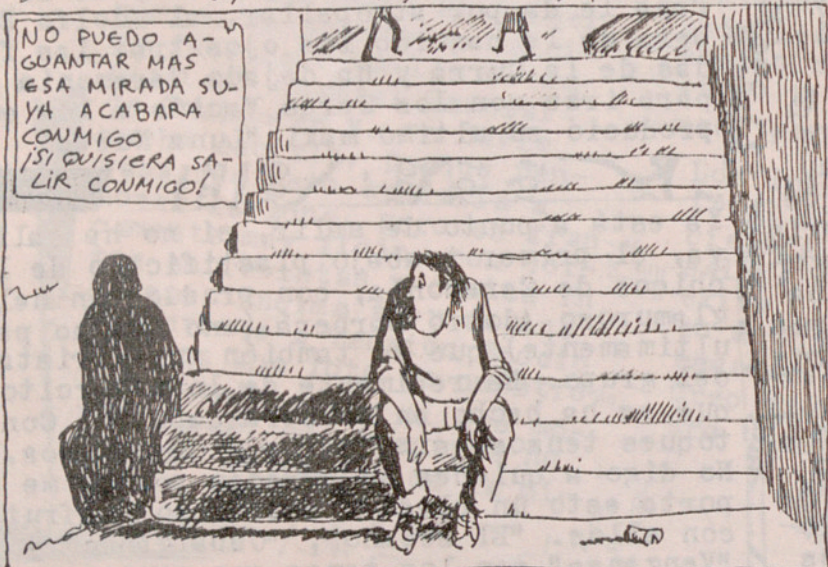 NO PUEDO A-
GUANTAR MAS
ESA MIRADA SU-
YA ACABARA
CONMIGO
¡SI QUISIERA SA-
LIR CONMIGO!